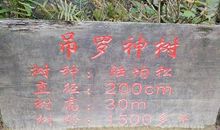 吊罗神树
树种：陆均松
直径：200cm
树高：30m
树龄：1500多年